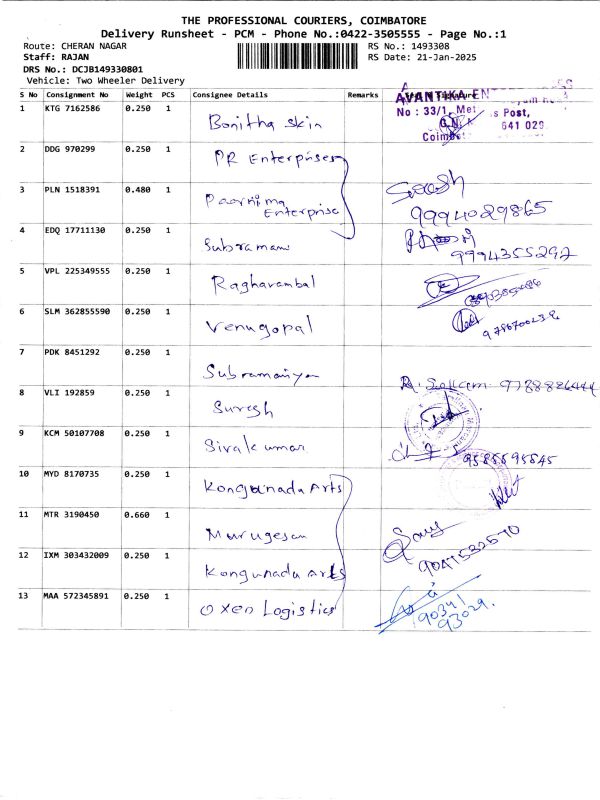 THE PROFESSIONAL COURIERS, COIMBATORE
Delivery Runsheet - PCM - Phone No.:0422-3505555 - Page No.:1
Route: CHERAN NAGAR RS No.: 1493308
Staff: RAJAN RS Date: 21-Jan-2025
DRS No.: DCJB149330801
Vehicle: Two Wheeler Delivery
S No Consignment No Weight PCS Consignee Details Remarks Signature
AVANTIKA EN
No : 33/1, Met s Post,
641 029.
1 KTG 7162586 0.250 1 Bonitha skin
2 DDG 970299 0.250 1 PR Enterprises
3 PLN 1518391 0.480 1 Poornima Enterprise
9994029865
4 EDQ 17711130 0.250 1 Subramani
9994355292
5 VPL 225349555 0.250 1 Raghavambal
6 SLM 362855590 0.250 1 Venugopal
7 PDK 8451292 0.250 1 Subramaniyan
8 VLI 192859 0.250 1 Suresh
9 KCM 50107708 0.250 1 Sivakumar
9585595545
10 MYD 8170735 0.250 1 Kongunada Arts
11 MTR 3190450 0.660 1 Murugesan
12 IXM 303432009 0.250 1 Kongunada Arts
13 MAA 572345891 0.250 1 Oxen Logistics
90341
93029.